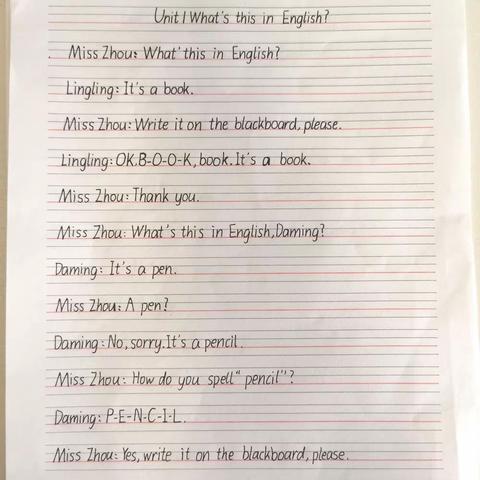 Unit 1 What's this in English?
Miss Zhou: What'this in English?
Lingling: It's a book.
Miss Zhou: Write it on the blackboard, please.
Lingling: OK.B-O-O-K, book. It's a book.
Miss Zhou: Thank you.
Miss Zhou: What's this in English,Daming?
Daming: It's a pen.
Miss Zhou: A pen?
Daming: No, sorry.It's a pencil.
Miss Zhou: How do you spell“pencil”?
Daming: P-E-N-C-I-L.
Miss Zhou: Yes, write it on the blackboard, please.